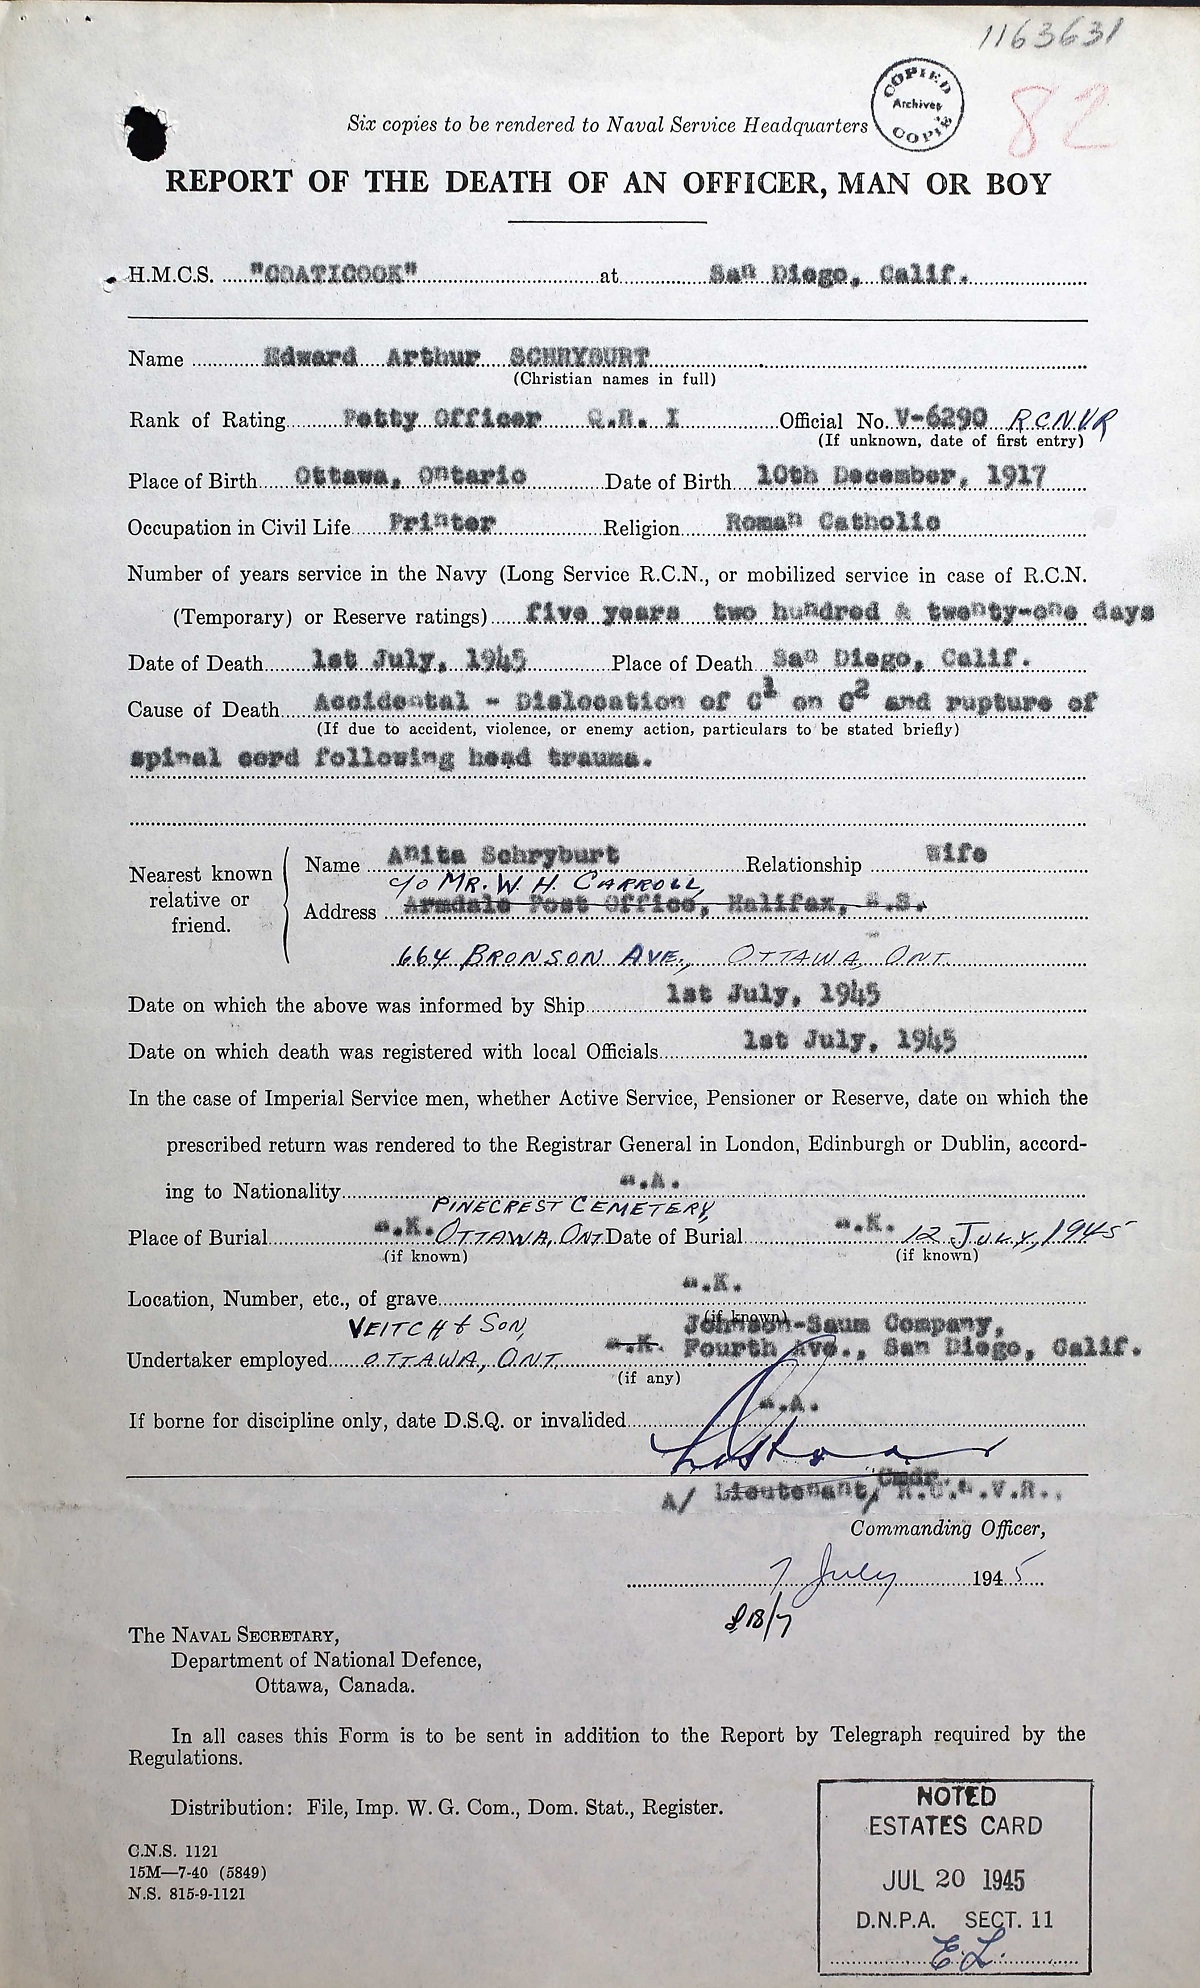 1163631
COPIED
Archives
COPIE
82
Six copies to be rendered to Naval Service Headquarters
REPORT OF THE DEATH OF AN OFFICER, MAN OR BOY
H.M.C.S. "COATICOOK" at San Diego, Calif.
Name Edward Arthur SCHRYBURT
(Christian names in full)
Rank of Rating Petty Officer Q.R. I Official No. V-6290 RCNVR
(If unknown, date of first entry)
Place of Birth Ottawa, Ontario Date of Birth 10th December, 1917
Occupation in Civil Life Printer Religion Roman Catholic
Number of years service in the Navy (Long Service R.C.N., or mobilized service in case of R.C.N.
(Temporary) or Reserve ratings) five years two hundred & twenty-one days
Date of Death 1st July, 1945 Place of Death San Diego, Calif.
Cause of Death Accidental - Dislocation of C1 on C2 and rupture of
(If due to accident, violence, or enemy action, particulars to be stated briefly)
spinal cord following head trauma.
Nearest known relative or friend.
Name Anita Schryburt Relationship Wife
c/o MR. W. H. CARROLL,
Address Armdale Post Office, Halifax, N.S.
664 BRONSON AVE., OTTAWA, ONT.
Date on which the above was informed by Ship 1st July, 1945
Date on which death was registered with local Officials 1st July, 1945
In the case of Imperial Service men, whether Active Service, Pensioner or Reserve, date on which the
prescribed return was rendered to the Registrar General in London, Edinburgh or Dublin, accord-
ing to Nationality N.A.
PINECREST CEMETERY,
Place of Burial N.K. OTTAWA, ONT. Date of Burial N.K. 12 JULY, 1945
(if known) (if known)
Location, Number, etc., of grave N.K.
(if known)
VEITCH & SON, Johnson-Saum Company,
Undertaker employed OTTAWA, ONT. N.K. Fourth Ave., San Diego, Calif.
(if any)
If borne for discipline only, date D.S.Q. or invalided N.A.
A/ Lieutenant, Cmdr. R.C.N.V.R.,
Commanding Officer,
7 July 1945
18/7
The NAVAL SECRETARY,
Department of National Defence,
Ottawa, Canada.
In all cases this Form is to be sent in addition to the Report by Telegraph required by the
Regulations.
Distribution: File, Imp. W. G. Com., Dom. Stat., Register.
C.N.S. 1121
15M—7-40 (5849)
N.S. 815-9-1121
NOTED
ESTATES CARD
JUL 20 1945
D.N.P.A. SECT. 11
E.L.